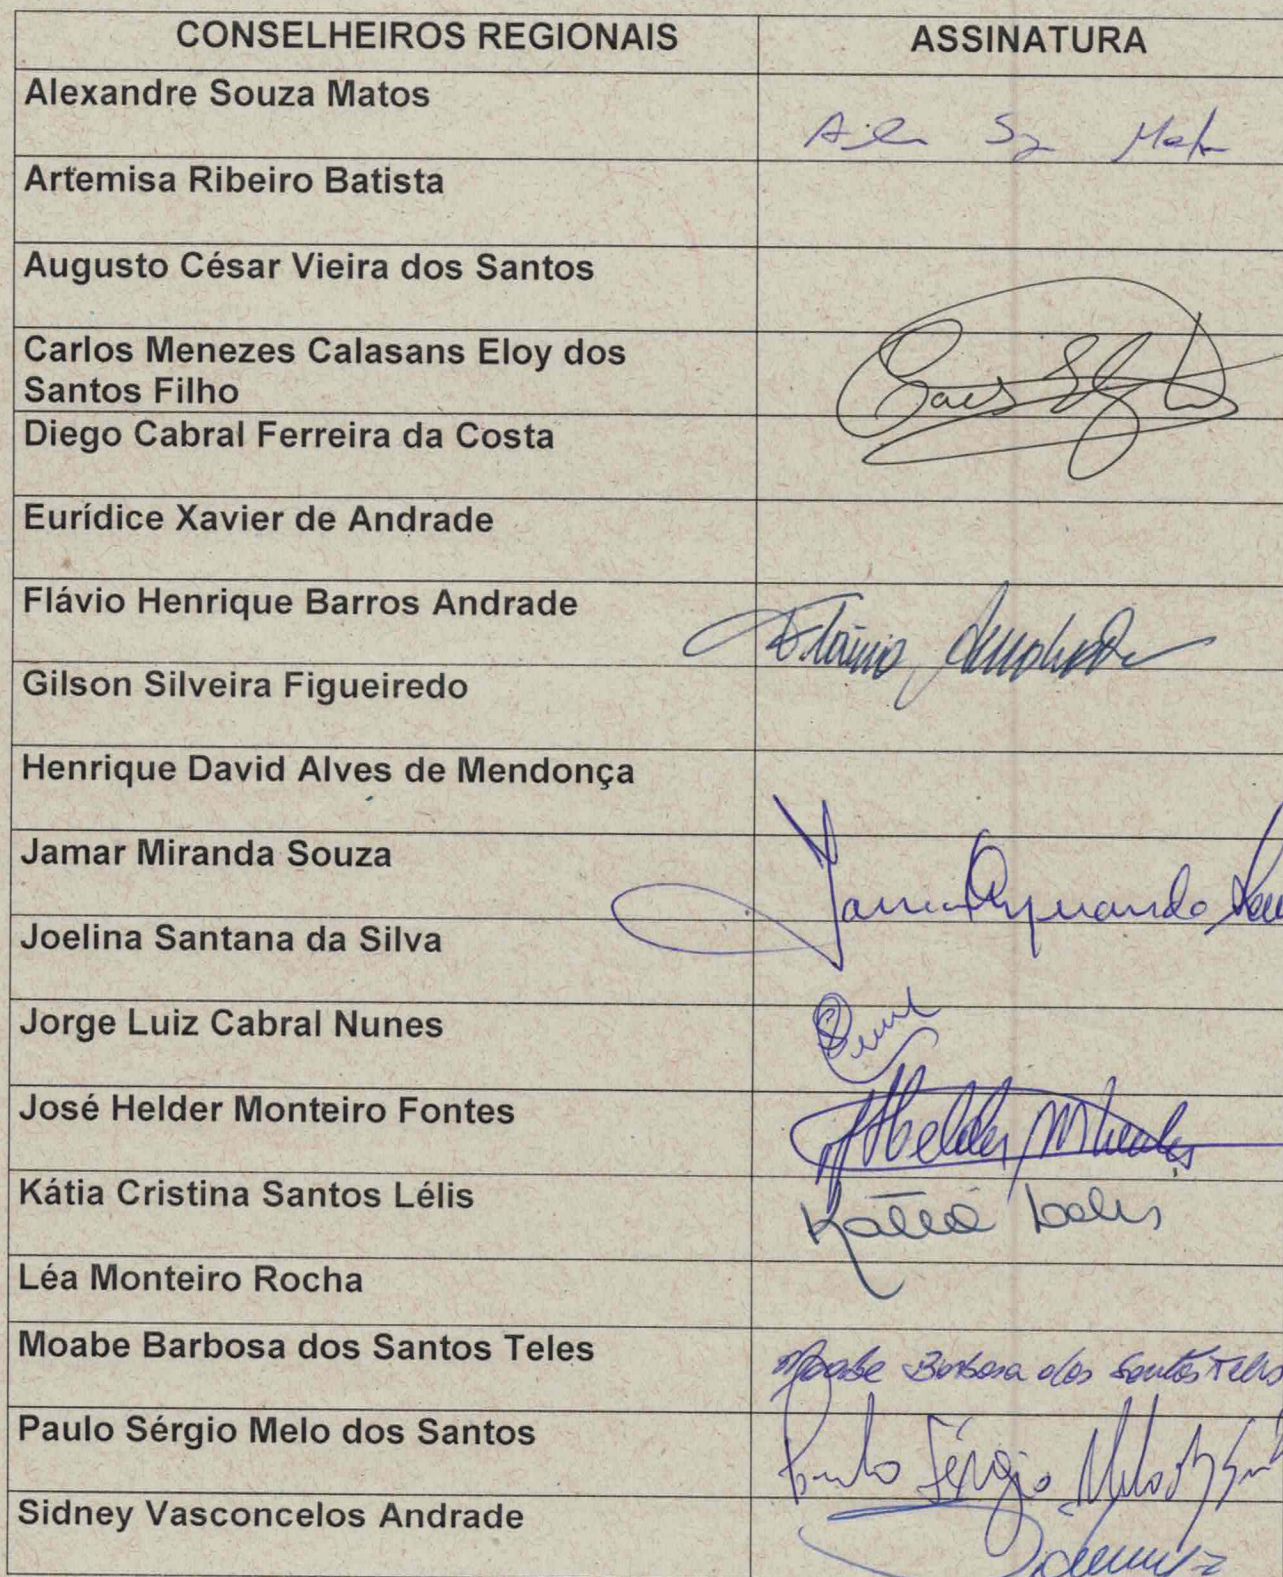 CONSELHEIROS REGIONAIS ASSINATURA
Alexandre Souza Matos
Artemisa Ribeiro Batista
Augusto César Vieira dos Santos
Carlos Menezes Calasans Eloy dos
Santos Filho
Diego Cabral Ferreira da Costa
Eurídice Xavier de Andrade
Flávio Henrique Barros Andrade
Flávio Andrade
Gilson Silveira Figueiredo
Henrique David Alves de Mendonça
Jamar Miranda Souza
Joelina Santana da Silva
Jorge Luiz Cabral Nunes
José Helder Monteiro Fontes
Helder
Kátia Cristina Santos Lélis
Kátia Lelis
Léa Monteiro Rocha
Moabe Barbosa dos Santos Teles Moabe Barbosa dos Santos Teles
Paulo Sérgio Melo dos Santos
Paulo Sérgio Melo
Sidney Vasconcelos Andrade